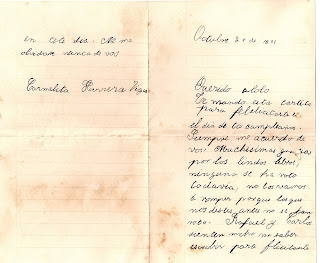 Octubre de
Querido
Te mando esta cartita
para felicitarte
el dia de tu cumpleaños.
Siempre me acuerdo de
vos. Muchisimas gracias
por los lindos libros,
ninguno se ha roto
todavia, no los vamos
a romper porque los que
nos distes antes no se han
roto. Rafael y Carlos
sienten mucho no saber
escribir para felicitarte
en este dia. No me
olvidaré nunca de vos
Carmelita Herrera Vegas